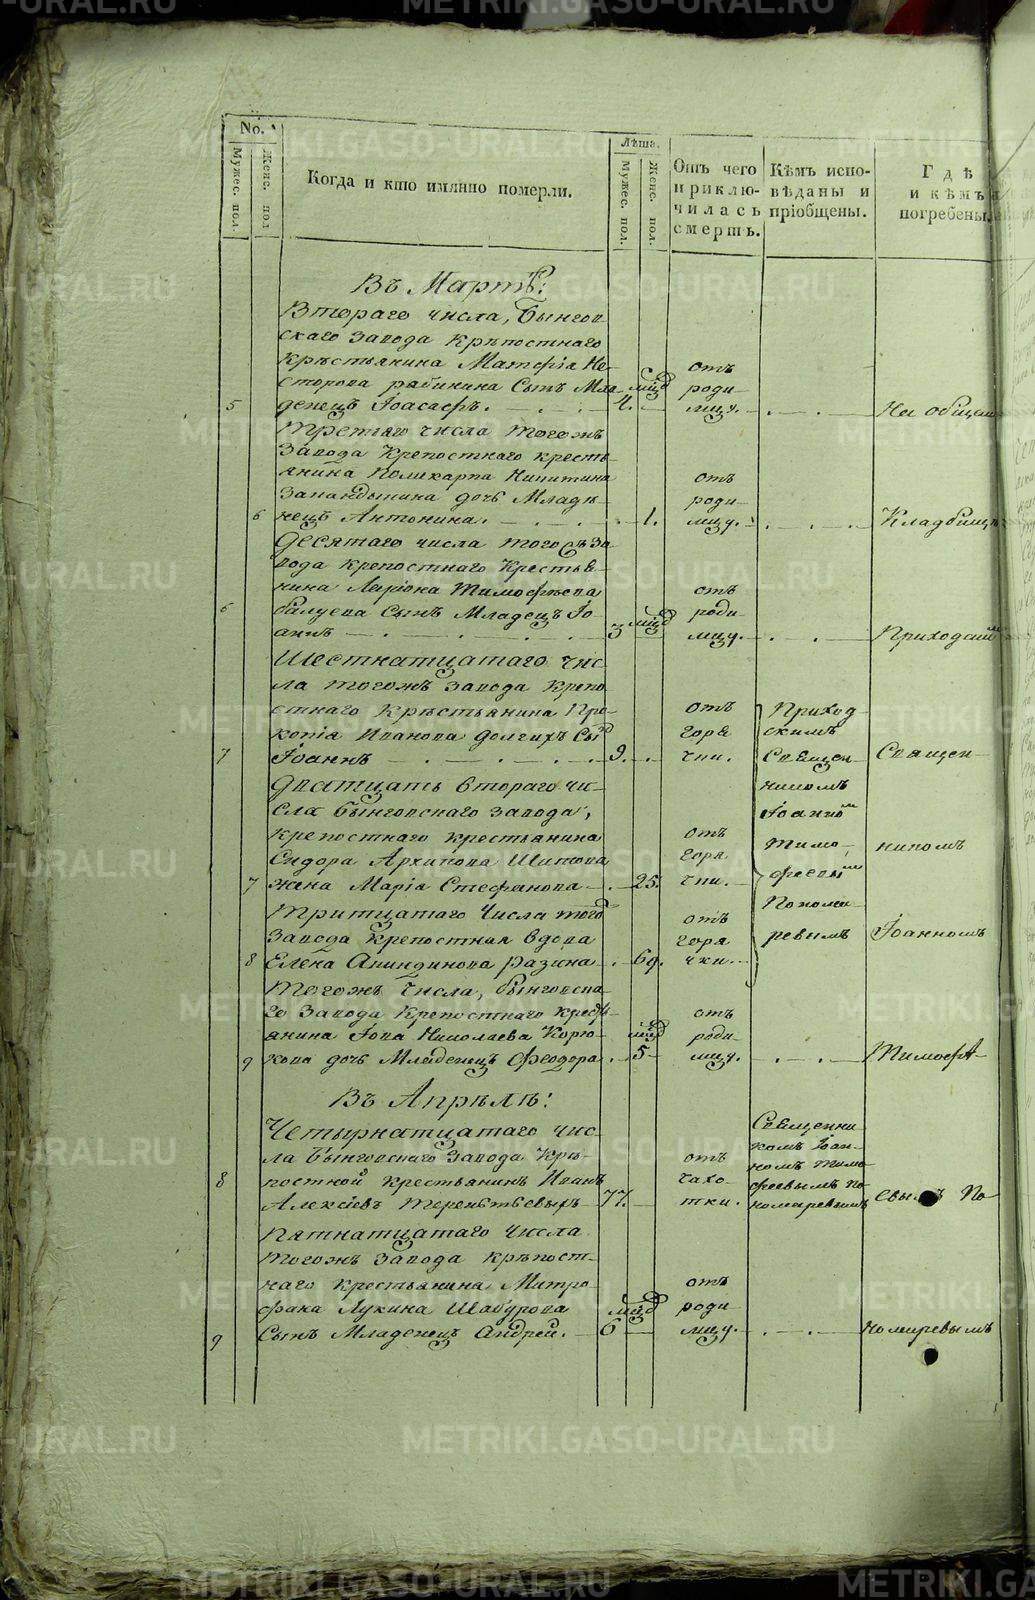 No.
Мужес. пол.
Женс. пол
Когда и кто имянно померли.
Лѣта.
Мужес. пол.
Женс. пол.
Отъ чего
приклю-
чилась
смерть.
Кѣмъ испо-
вѣданы и
пріобщены.
Гдѣ
и кѣмъ
погребены.
Въ Мартѣ:
Втораго числа, Бынгов
скаго завода крѣпостнаго
крѣстьянина Матфіа Не-
сторова рабинина Сынъ Мла
5 денецъ Іоасафъ. 4. мцѣ
отъ
роди
мцу.
На общем
Третяго числа Тогожъ
Завода Крепостнаго кресть-
янина Поликарпа Никитина
дочь Младѣ-
6 нецъ Антонина. 1.
отъ
роди-
мцу.
Кладбищѣ
Десятаго числа того За-
вода крепостнаго Крестья-
нина Ларіона Тимофѣева
балуева Сынъ Младенцъ Іо-
6 аннъ 3 мцѣ
отъ
роди-
мцу.
Приходскимъ
Шестнатцатаго чис-
ла тогожъ завода крепо
стнаго Крѣстьянина Про-
копія Иванова Долгихъ Сынъ
7 Іоаннъ 9.
отъ
горя
чки.
Приход-
скимъ
Священ-
никомъ
Іоанномъ
Тимо-
феевымъ
Пономa-
ревымъ
Священ-
Дватцать втораго чи-
сла бынговскаго завода,
крепостнаго крестьянина
Сидора Архипова Шитова
7 жена Марія Стефанова 25.
отъ
горя
чки.
никомъ
Тритцатаго Числа того
Завода крепостная вдова
8 Елена разина 69.
отъ
горя
чки.
Іоанномъ
Тогожъ Числа, бынговска-
го Завода Крепостнаго крест
янина Іова Николаева Корю-
9 кова дочь Младенецъ Феодора 5 мцѣ
отъ
роди
мцу.
Тимофѣ-
Въ Апрѣлѣ:
Четырнатцатаго чис-
ла Бынговскаго Завода Крѣ-
постной крестьянинъ Иванъ
8 Алексіевъ Терентьевыхъ 77.
отъ
чахо-
тки.
Священни
комъ Іоан-
номъ Тимо-
феевымъ По-
номаревымъ
евымъ По-
Пятнатцатаго Числа
тогожъ завода крѣпост-
наго крестьянина Митро-
фана Лукина Шабурова
9 Сынъ Младенецъ Андрей. 6 мцѣ
отъ
роди
мцу.
номаревымъ
METRIKI.GASO-URAL.RU